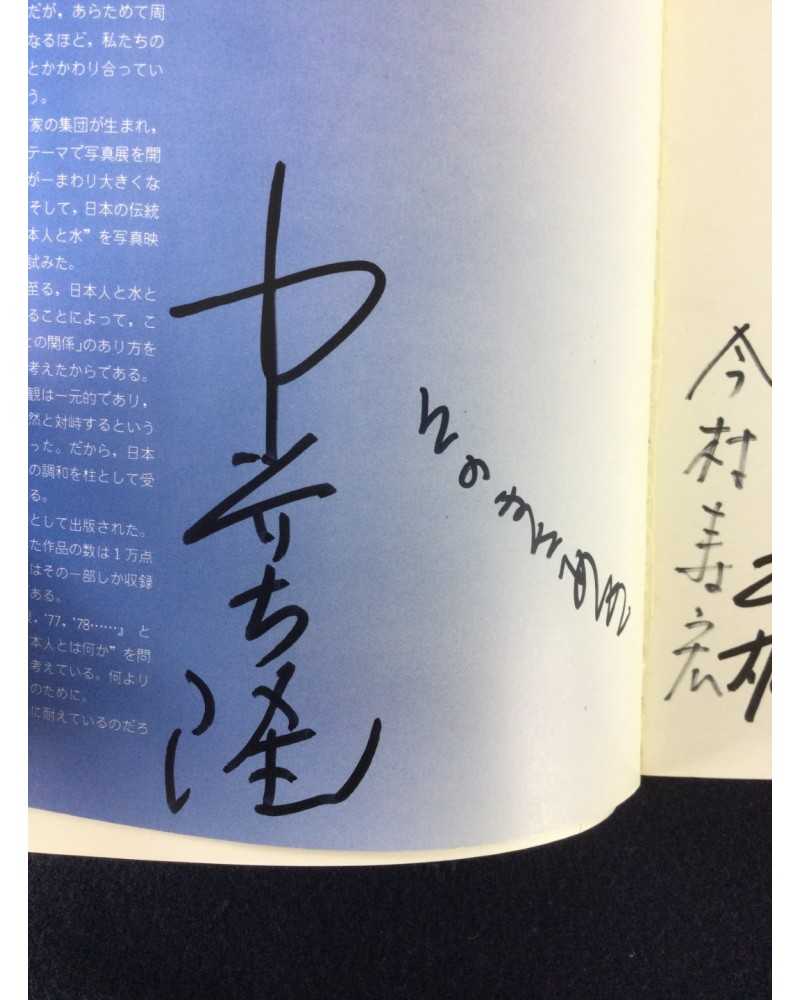 だが，あらためて周
なるほど，私たちの
とかかわり合ってい
う。
家の集団が生まれ，
テーマで写真展を開
が一まわり大きくな
そして，日本の伝統
本人と水”を写真映
試みた。
至る，日本人と水と
ることによって，こ
との関係」のあり方を
考えたからである。
観は一元的であり，
然と対峙するという
った。だから，日本
の調和を柱として受
る。
として出版された。
た作品の数は1万点
はその一部しか収録
ある。
，'77，'78……』 と
本人とは何か”を問
考えている。何より
のために。
に耐えているのだろ
中谷吉隆
今村寿宏